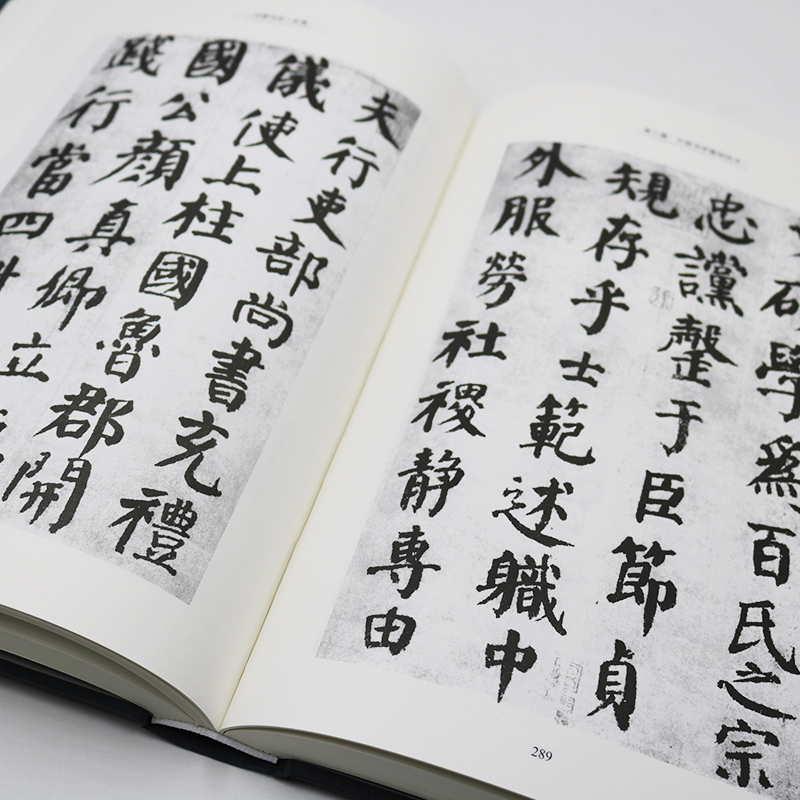 夫行吏部尚書充禮
儀使上柱國魯郡開
國公顏真卿立
踐行當四科
碩學爲百氏之宗
忠讜罄于臣節貞
規存乎士範述職中
外服勞社稷静專由
289